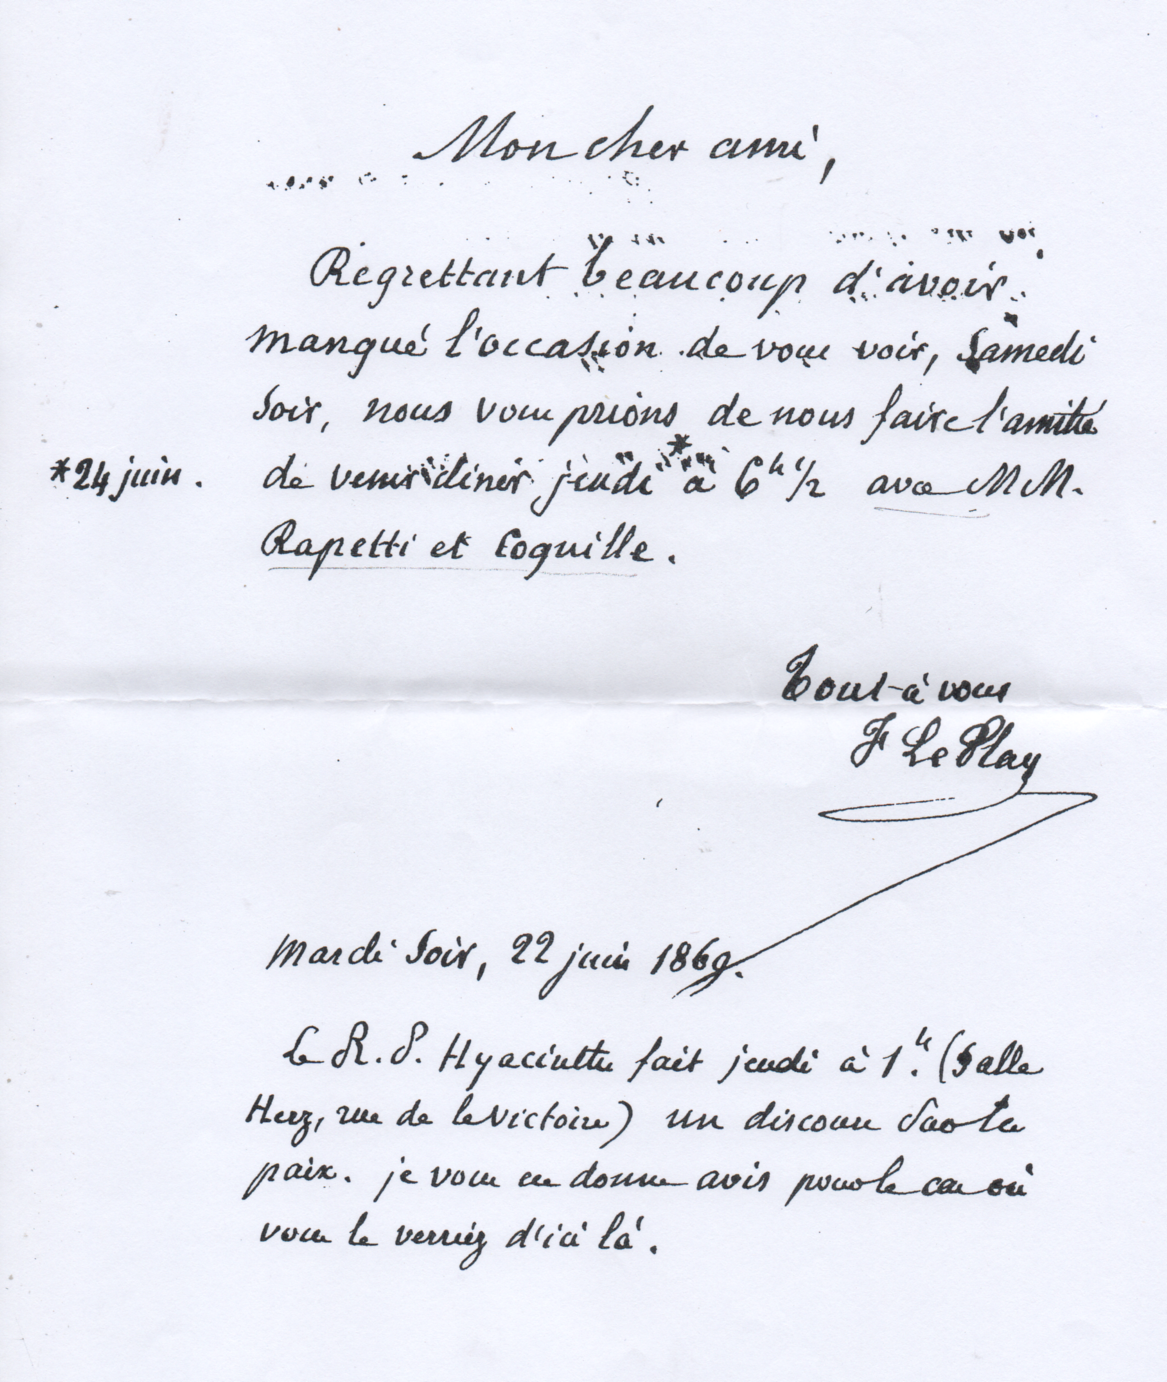 Mon cher ami,
Regrettant beaucoup d'avoir
manqué l'occasion de vous voir, Samedi
Soir, nous vous prions de nous faire l'amitié
*24 juin. de venir diner jeudi * à 6h 1/2 avec MM.
Rapetti et Coquille.
Tout-à vous
F Le Play
Mardi Soir, 22 juin 1869.
Le R. P. Hyacinthe fait jeudi à 1.h (Salle
Herz, rue de la Victoire) un discours sur la
paix. je vous en donne avis pour le cas où
vous le verriez d'ici là.